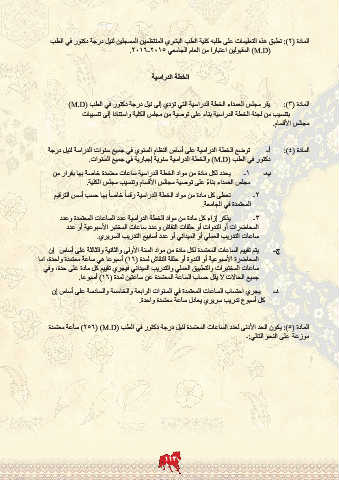 المادة (٢): تطبق هذه التعليمات على طلبه كلية الطب البشري المنتظمين المسجلين لنيل درجة دكتور في الطب
(M.D) المقبولين اعتبارا من العام الجامعي ٢٠١٥-٢٠١٦.
الخطة الدراسية
المادة (٣): يقر مجلس العمداء الخطة الدراسية التي تؤدي إلى نيل درجة دكتور في الطب (M.D)
بتنسيب من لجنة الخطة الدراسية بناء على توصية من مجلس الكلية واستنادا إلى تنسيبات
مجلس الأقسام.
المادة (٤): أ- توضع الخطة الدراسية على أساس النظام السنوي في جميع سنوات الدراسة لنيل درجة
دكتور في الطب (M.D) والخطة الدراسية سنوية إجبارية في جميع السنوات.
ب- ١- يحدد لكل مادة من مواد الخطة الدراسية ساعات معتمدة خاصة بها بقرار من
مجلس العمداء بناء على توصية مجلس الأقسام وتنسيب مجلس الكلية.
٢- تعطى كل مادة من مواد الخطة الدراسية رقماً خاصاً بها حسب أسس الترقيم
المعتمدة في الجامعة.
٣- يذكر إزاء كل مادة من مواد الخطة الدراسية عدد الساعات المعتمدة وعدد
المحاضرات أو الندوات أو حلقات النقاش وعدد ساعات المختبر الأسبوعية أو عدد
ساعات التدريب العملي أو الميداني أو عدد أسابيع التدريب السريري.
ج- يتم تقييم الساعات المعتمدة لكل مادة من مواد السنة الأولى والثانية والثالثة على أساس إن
المحاضرة الأسبوعية أو الندوة أو حلقة النقاش لمدة (١٦) أسبوعا هي ساعة معتمدة واحدة، اما
ساعات المختبرات والتطبيق العملي والتدريب الميداني فيجري تقييم كل مادة على حدة، وفي
جميع الحالات لا يقل حساب الساعة المعتمدة عن ساعتين لمدة (١٦) أسبوعا.
د- يجري احتساب الساعات المعتمدة في السنوات الرابعة والخامسة والسادسة على أساس إن
كل أسبوع تدريب سريري يعادل ساعة معتمدة واحدة.
المادة (٥): يكون الحد الأدنى لعدد الساعات المعتمدة لنيل درجة دكتور في الطب (M.D) (٢٥٦) ساعة معتمدة
موزعة على النحو التالي:-